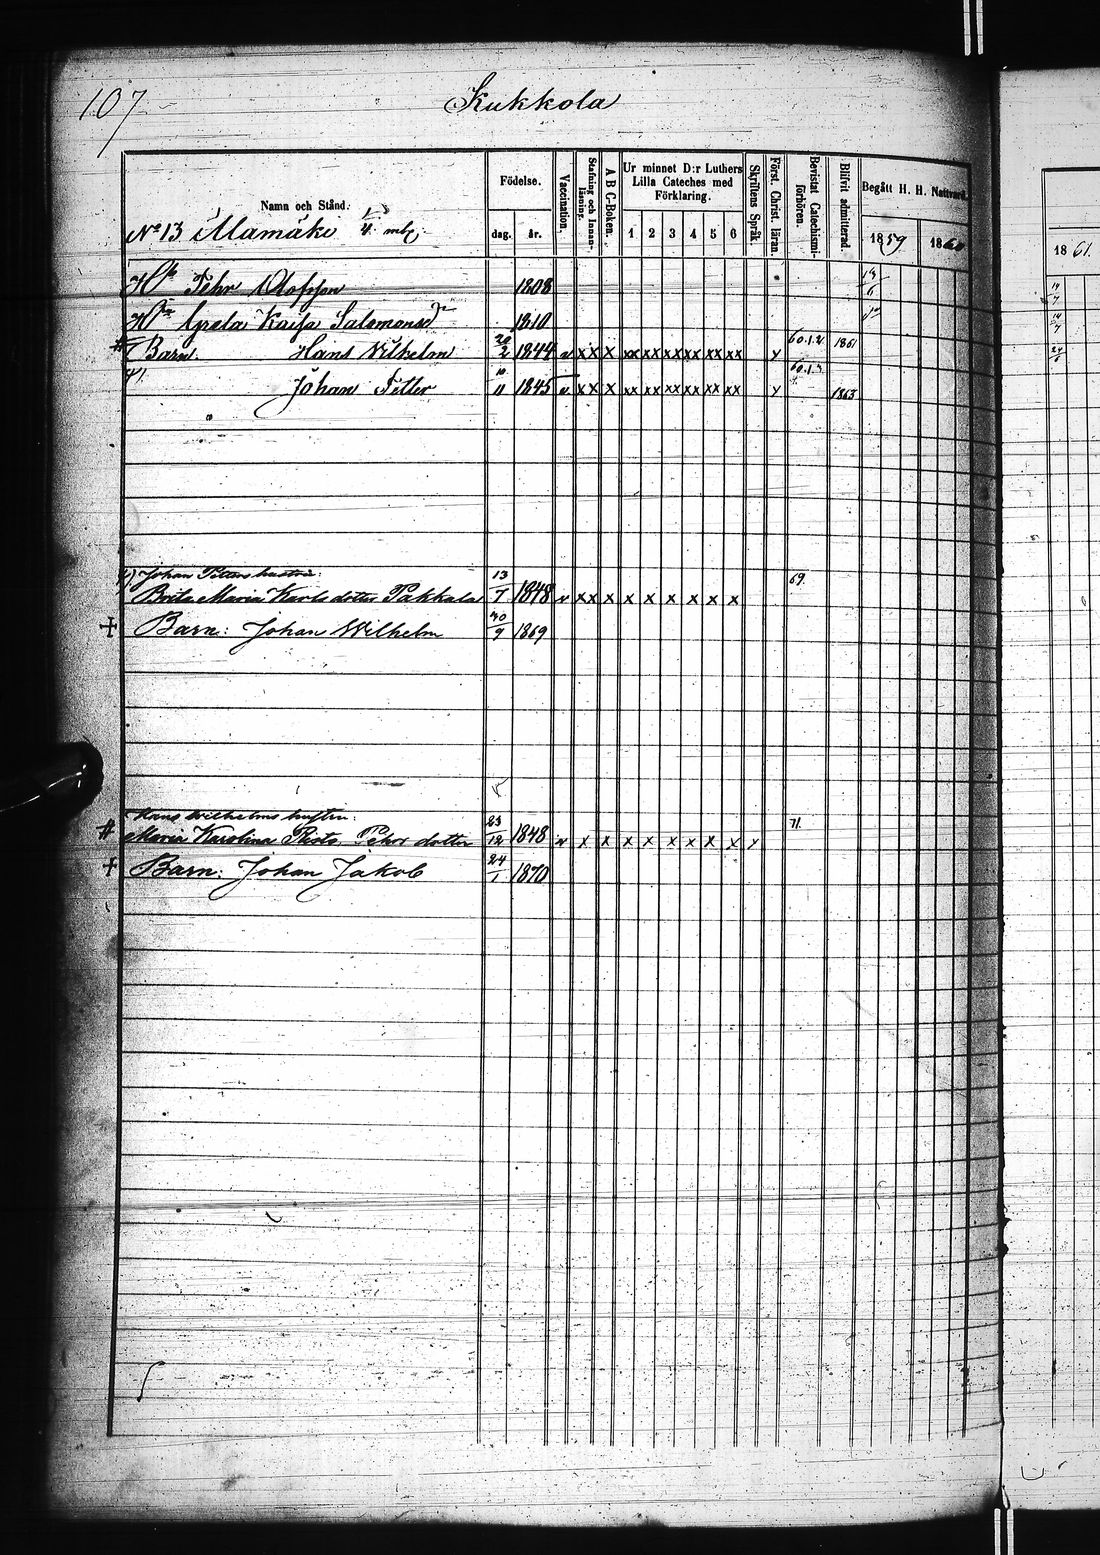 107
Kukkola
Namn och Stånd. Födelse. Vaccination. Stafning och Innanläsning. A B C-Boken. Ur minnet D:r Luthers Lilla Cateches med Förklaring. Skriftens Språk Först. Christ. läran. Bevistat Catechismiförhören. Blifvit admitterad. Begått H. H. Nattvard.
dag. år. 1 2 3 4 5 6 1859 1860 1861.
No 13 Alamäki
Pehr Olofsson 1808
Greta Kaisa Salomonsd:r 1810
Barn. Hans Wilhelm 20/2 1844 v x x x xx xx xx xx xx xx y 60.1.2. 1861
Johan Petter 10/11 1845 v x x x xx xx xx xx xx xx y 1863
Johan Petters hustru:
Brita Maria Karlsdotter Pakkala 13/7 1848 v xx x x x x x x x 69.
+ Barn: Johan Wilhelm 30/9 1869
Hans Wilhelms hustru:
# Maria Karolina Pehrsdotter 23/12 1848 v x x x x x x x x y 71.
+ Barn: Johan Jakob 24/1 1870